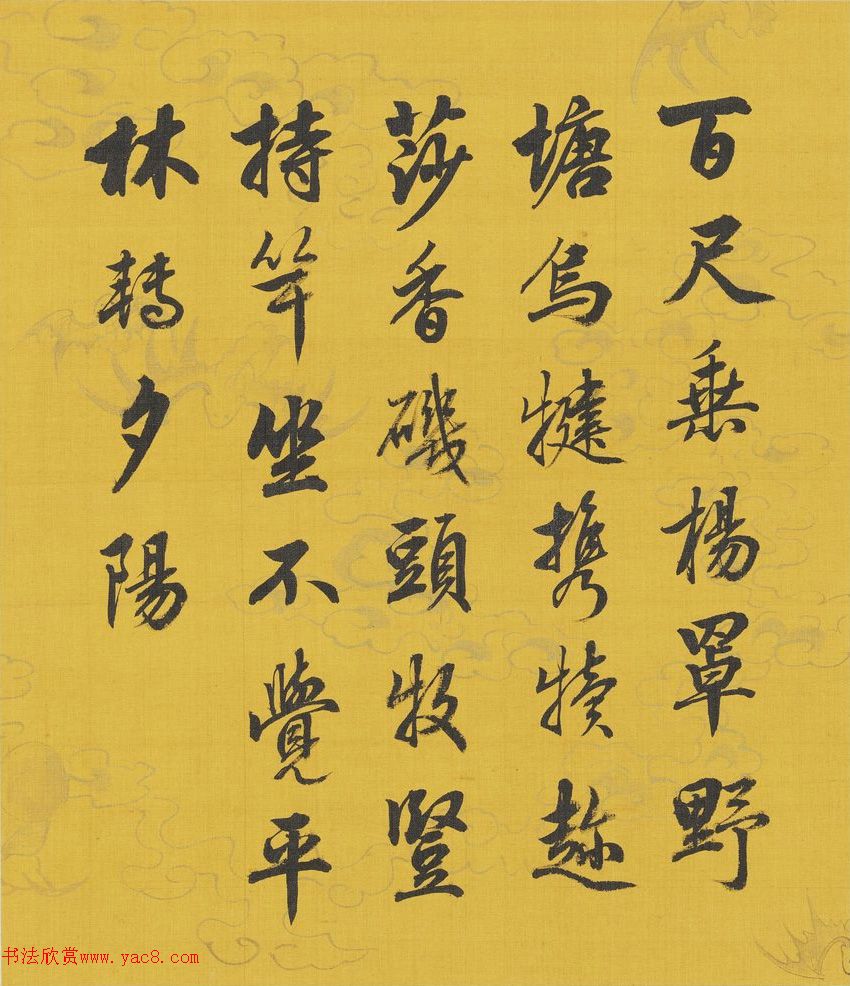 百尺乗楊罩野
塘烏犍携犢趂
莎香磯頭牧豎
持竿坐不覺平
林轉夕陽
书法欣赏www.yac8.com